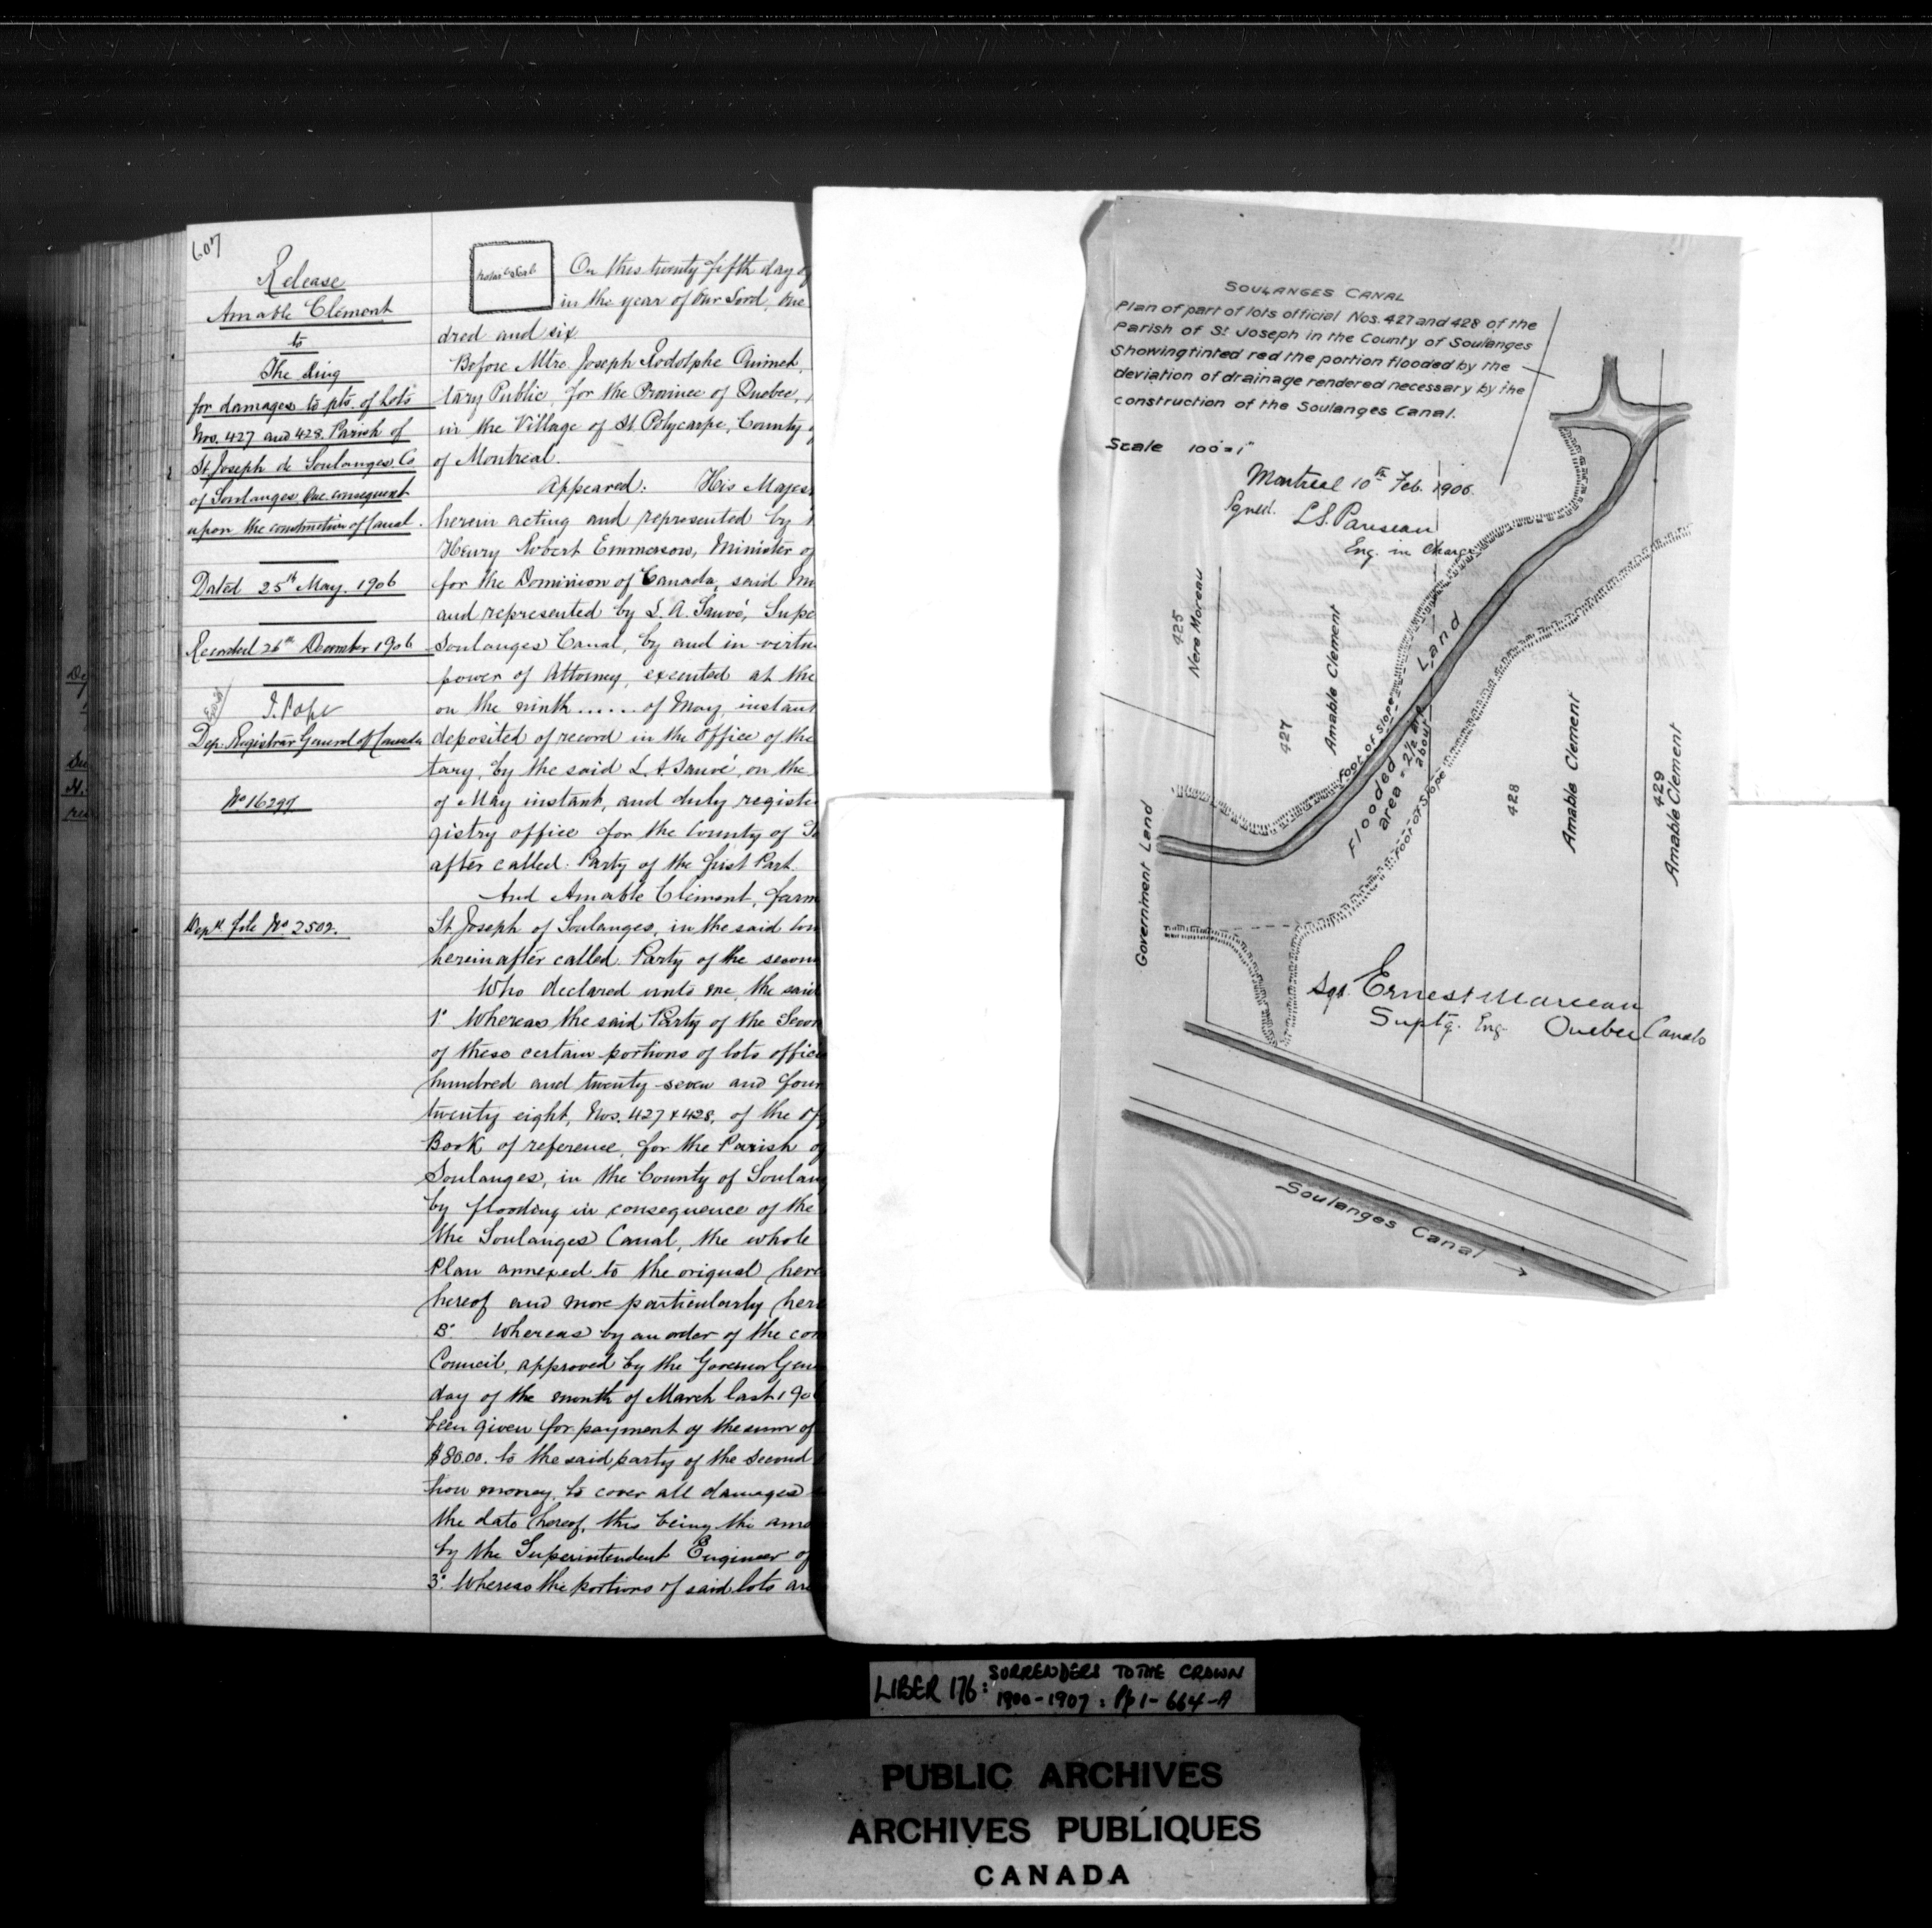 607
Release
Amable Clément
to
The King
for damages to pts. of Lots
Nos. 427 and 428 Parish of
St Joseph de Soulanges Co
of Soulanges, Que. consequent
upon the construction of Canal.
Dated 25th May. 1906
Recorded 26th December 1906
J. Pope
Dep. Registrar General of Canada
No 16297
Dept file No. 2502.
Notarial Seal
On this twenty fifth day of
in the year of Our Lord, One
dred and six
Before Mtre. Joseph Rodolphe Ouimet,
tary Public, for the Province of Quebec,
in the Village of St Polycarpe, County
of Montreal.
Appeared: His Majes
herein acting and represented by
Henry Robert Emmerson, Minister of
for the Dominion of Canada, said
and represented by L. A. Sauvé, Supe
Soulanges Canal, by and in virtue
power of Attorney, executed at the
on the ninth ...... of May, instant
deposited of record in the Office of the
tary, by the said L. A. Sauvé, on the
of May instant, and duly registe
gistry office for the County of
after called: Party of the first Part.
And Amable Clément, farm
St Joseph of Soulanges, in the said
hereinafter called Party of the secon
Who declared unto me, the said
1° Whereas the said Party of the Secon
of these certain portions of lots offic
hundred and twenty-seven and four
twenty eight, Nos. 427 & 428, of the
Book of reference, for the Parish of
Soulanges, in the County of Soulan
by flooding in consequence of the
the Soulanges Canal, the whole
Plan annexed to the original here
hereof and more particularly her
Whereas by an order of the
Council, approved by the Governor Gen
day of the month of March last 190
been given for payment of the sum of
$80.00. to the said party of the second
tion money, to cover all damages
the date hereof, this being the amo
by the Superintendent Engineer of
3° Whereas the portions of said lots are
SOULANGES CANAL
Plan of part of lots official Nos. 427 and 428 of the
Parish of St Joseph in the County of Soulanges
Showing tinted red the portion flooded by the
deviation of drainage rendered necessary by the
construction of the Soulanges Canal.
Scale 100' = 1"
Montreal 10th Feb. 1906.
Signed. L.S. Pariseau
Eng. in Charge
425
Nere Moreau
427
Amable Clement
Foot of Slope
Flooded Land
area = 2½ arp
about
Foot of Slope
428
Amable Clement
429
Amable Clement
Government Land
Sgd. Ernest Marceau
Suptg. Eng. Quebec Canals
Soulanges Canal
LIBER 176: SURRENDERS TO THE CROWN
1900-1907: Pp 1-664-A
PUBLIC ARCHIVES
ARCHIVES PUBLIQUES
CANADA